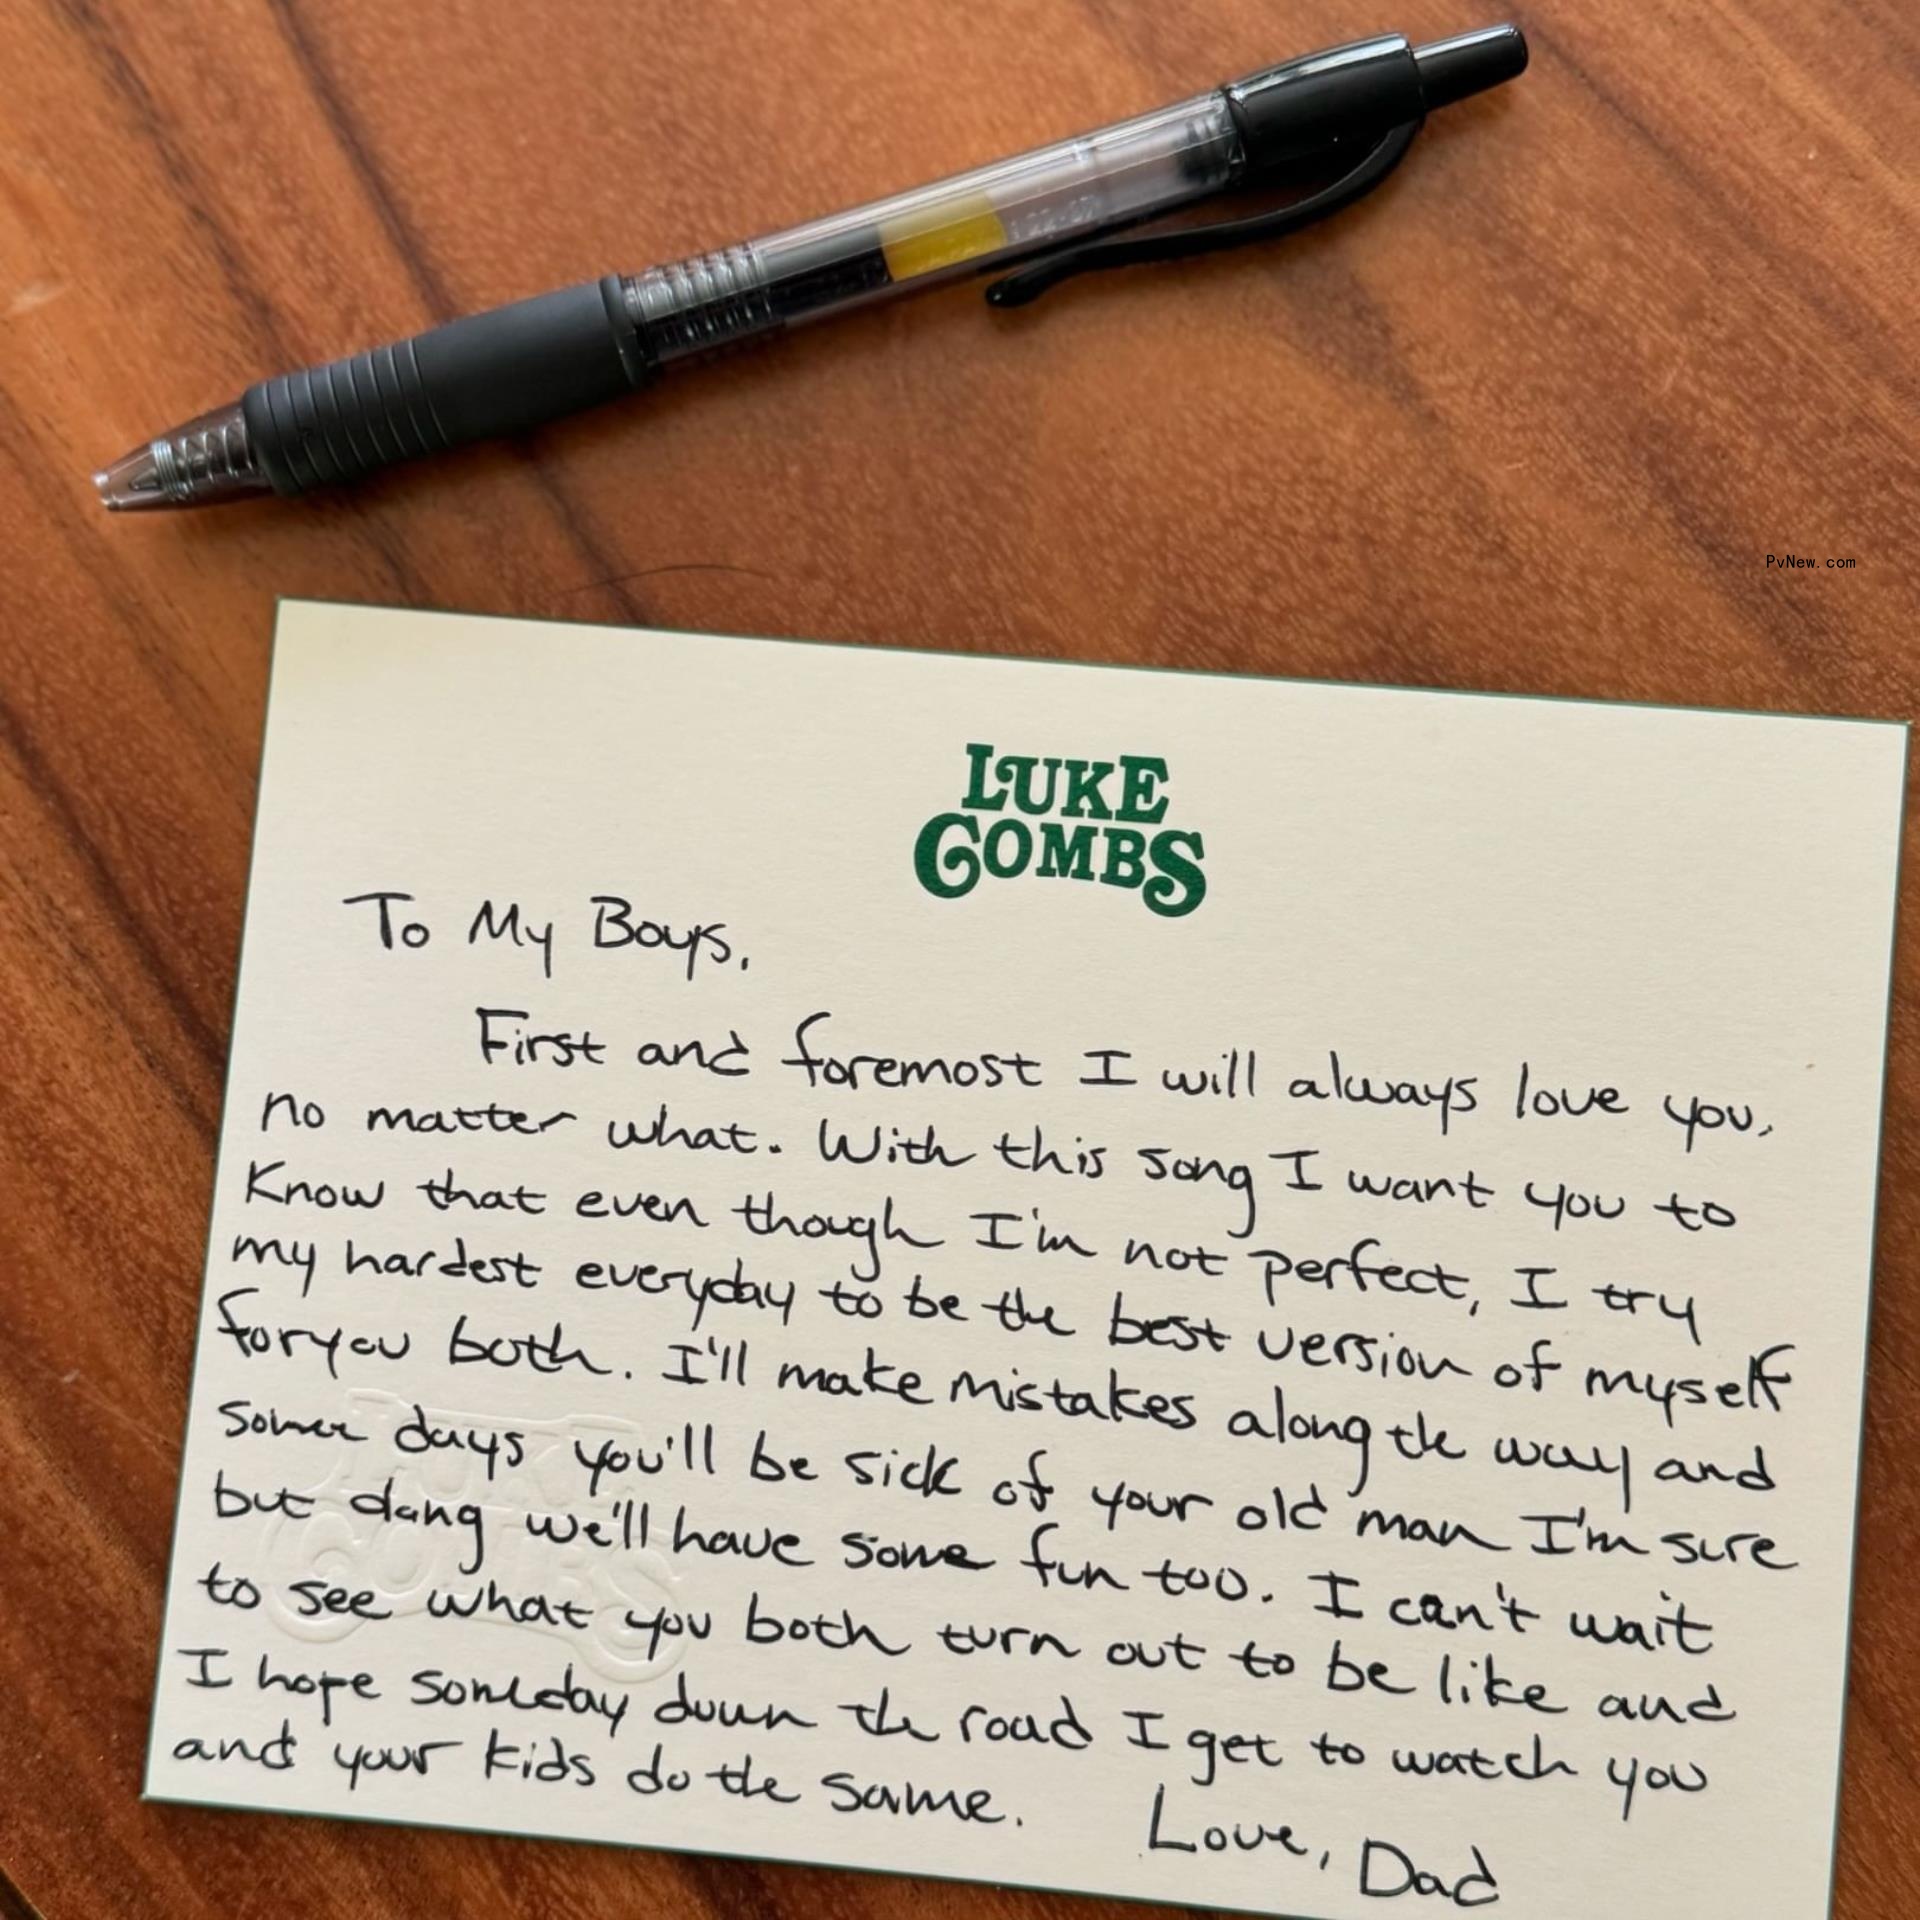 PvNew.com
LUKE
COMBS
To My Boys,
First and foremost I will always love you,
no matter what. With this song I want you to
Know that even though I'm not perfect, I try
my hardest everyday to be the best version of myself
for you both. I'll make mistakes along the way and
some days you'll be sick of your old man I'm sure
but dang we'll have some fun too. I can't wait
to see what you both turn out to be like and
I hope someday down the road I get to watch you
and your kids do the same.
Love, Dad
LUKE
COMBS